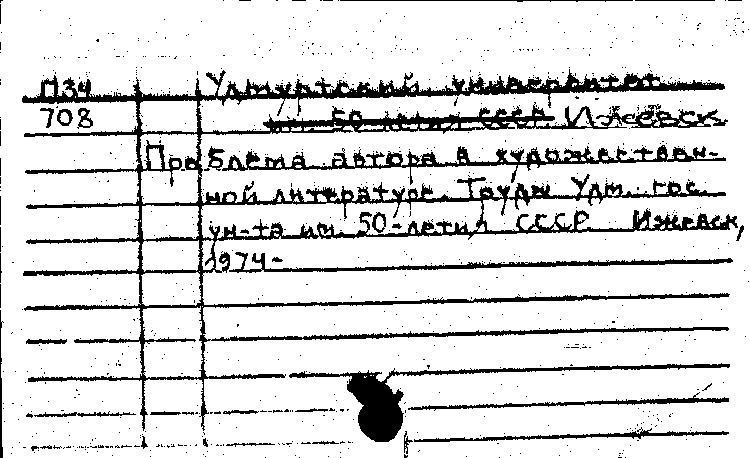 П34 Удмуртский университет
708 им. 50-летия СССР. Ижевск
Проблема автора в художествен-
ной литературе. Труды Удм. гос.
ун-та им. 50-летия СССР Ижевск,
1974-